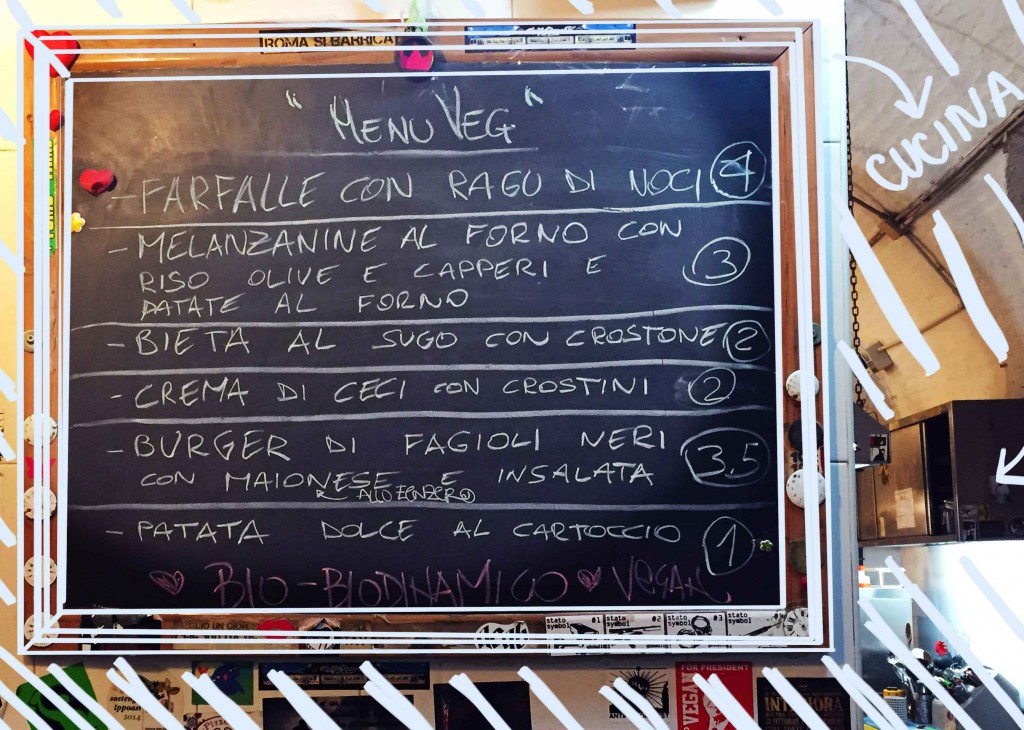 ROMA SI BARRICA
CUCINA
"MENU VEG"
- FARFALLE CON RAGU DI NOCI 4
- MELANZANINE AL FORNO CON
RISO OLIVE E CAPPERI E 3
PATATE AL FORNO
- BIETA AL SUGO CON CROSTONE 2
- CREMA DI CECI CON CROSTINI 2
- BURGER DI FAGIOLI NERI
CON MAIONESE E INSALATA 3,5
ALLO ZENZERO
- PATATA DOLCE AL CARTOCCIO 1
BIO-BIODINAMICO VEGAN
stato symbol #1
stato symbol #2
stato symbol #3
stato symbol
FOR PRESIDENT
VEGAN
2014